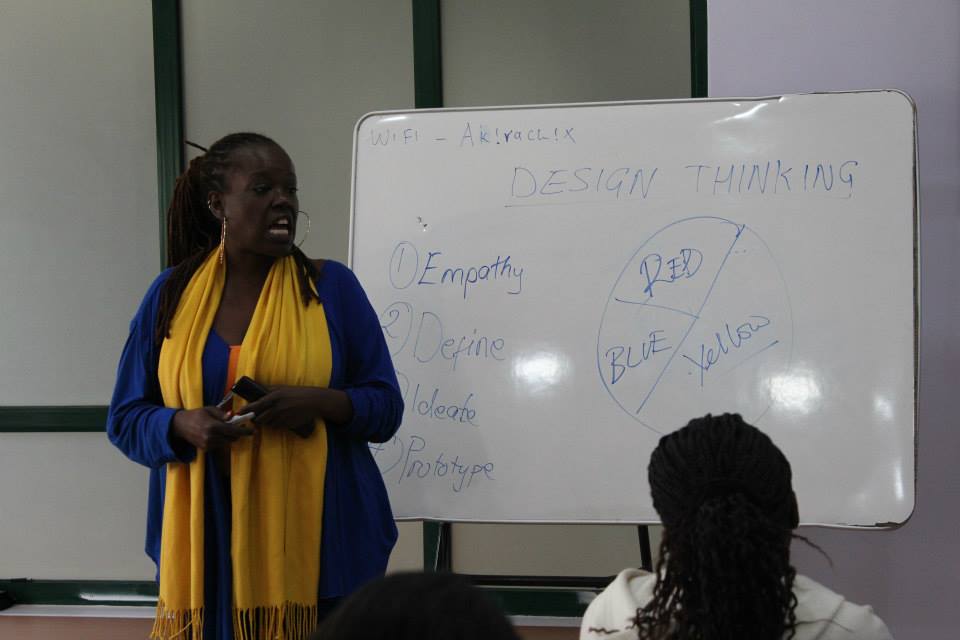 WIFI - Ak!rach!x
DESIGN THINKING
① Empathy
② Define
) Ideate
4) Prototype
RED
BLUE
Yellow